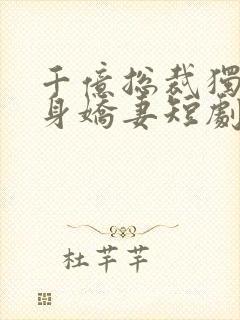 千億總裁獨
身嬌妻短劇
杜芊芊